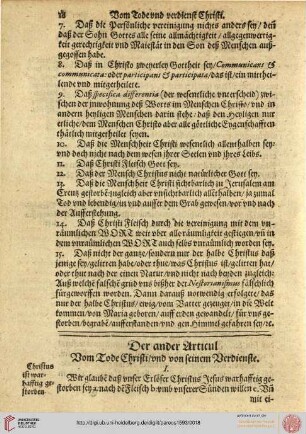 18 Vom Tode vnd verdienst Christi.
7. Daß die Persönliche vereinigung nichts anders sey / deñ
daß der Sohn Gottes alle seine allmächtigkeit / allgegenwertig-
keit gerechtigkeit vnd Maiestät in den Son deß Menschen auß-
gegossen habe.
8. Daß in Christo zweyerley Gottheit sey / Communicans &
communicata: oder participans & participata, das ist / ein mitthei-
lende vnd mitgetheilte.
9. Daß specifica differentia (der wesenliche vnterscheid) zwi-
schen der inwohnung deß Worts im Menschen Christo / vnd in
andern heyligen Menschen darin stehe / daß den Heyligen nur
etliche / dem Menschen Christo aber alle göttliche Eygenschafften
thätlich mitgetheilet seyen.
10. Daß die Menschheit Christi wesenlich allenthalben sey /
vnd doch nicht nach dem wesen ihrer Seelen vnd ihres Leibs.
11. Daß Christi Fleisch Gott sey.
12. Daß der Mensch Christus nicht natürlicher Gott sey.
13. Daß die Menschheit Christi sichtbarlich zu Jerusalem am
Creutz gestorbē: zugleich aber vnsichtbarlich allenthalben / ja zumal
Tod vnd lebendig / in vnd ausser dem Grab gewesen / vor vnd nach
der Aufferstehung.
14. Daß Christi Fleisch durch die vereinigung mit dem vn-
räumlichen WORT weit oder allräumligkeit gestiegen vñ in
dem vnräumlichen WORT auch selbs vnräumlich worden sey.
15. Daß nicht der gantz / sonder nur der halbe Christus daß
jenige sey / gelitten habe / oder thue / was er ist / gelitten hat / oder thut /
oder thut nach der einen Natur / vnd nicht nach beyden zugleich:
Auß welche falsche grūd vns bißher der Nestorianismus fälschlich
fürgeworffen worden. Dann darauß notwendig erfolgte / das
nur der halbe Christus / ewig vom Vatter gezeuget / in die Welt
kommen / von Maria geboren / auff erden gewandelt / für vns ge-
storben / begrabē / aufferstanden / vnd gen Himmel gefahren sey / ec.
Der ander Articul
Vom Tode Christi / vnd von seinem Verdienste.
I.
Christus
ist war-
hafftig ge-
storben
Wir glaubē daß vnser Erlöser Christus Jesus warhafftig ge-
storben sey / nach dē Fleisch / vmb vnserer Sünden willen
mit ei-
http://digi.ub.uni-heidelberg.de/diglit/pareus1593/0018